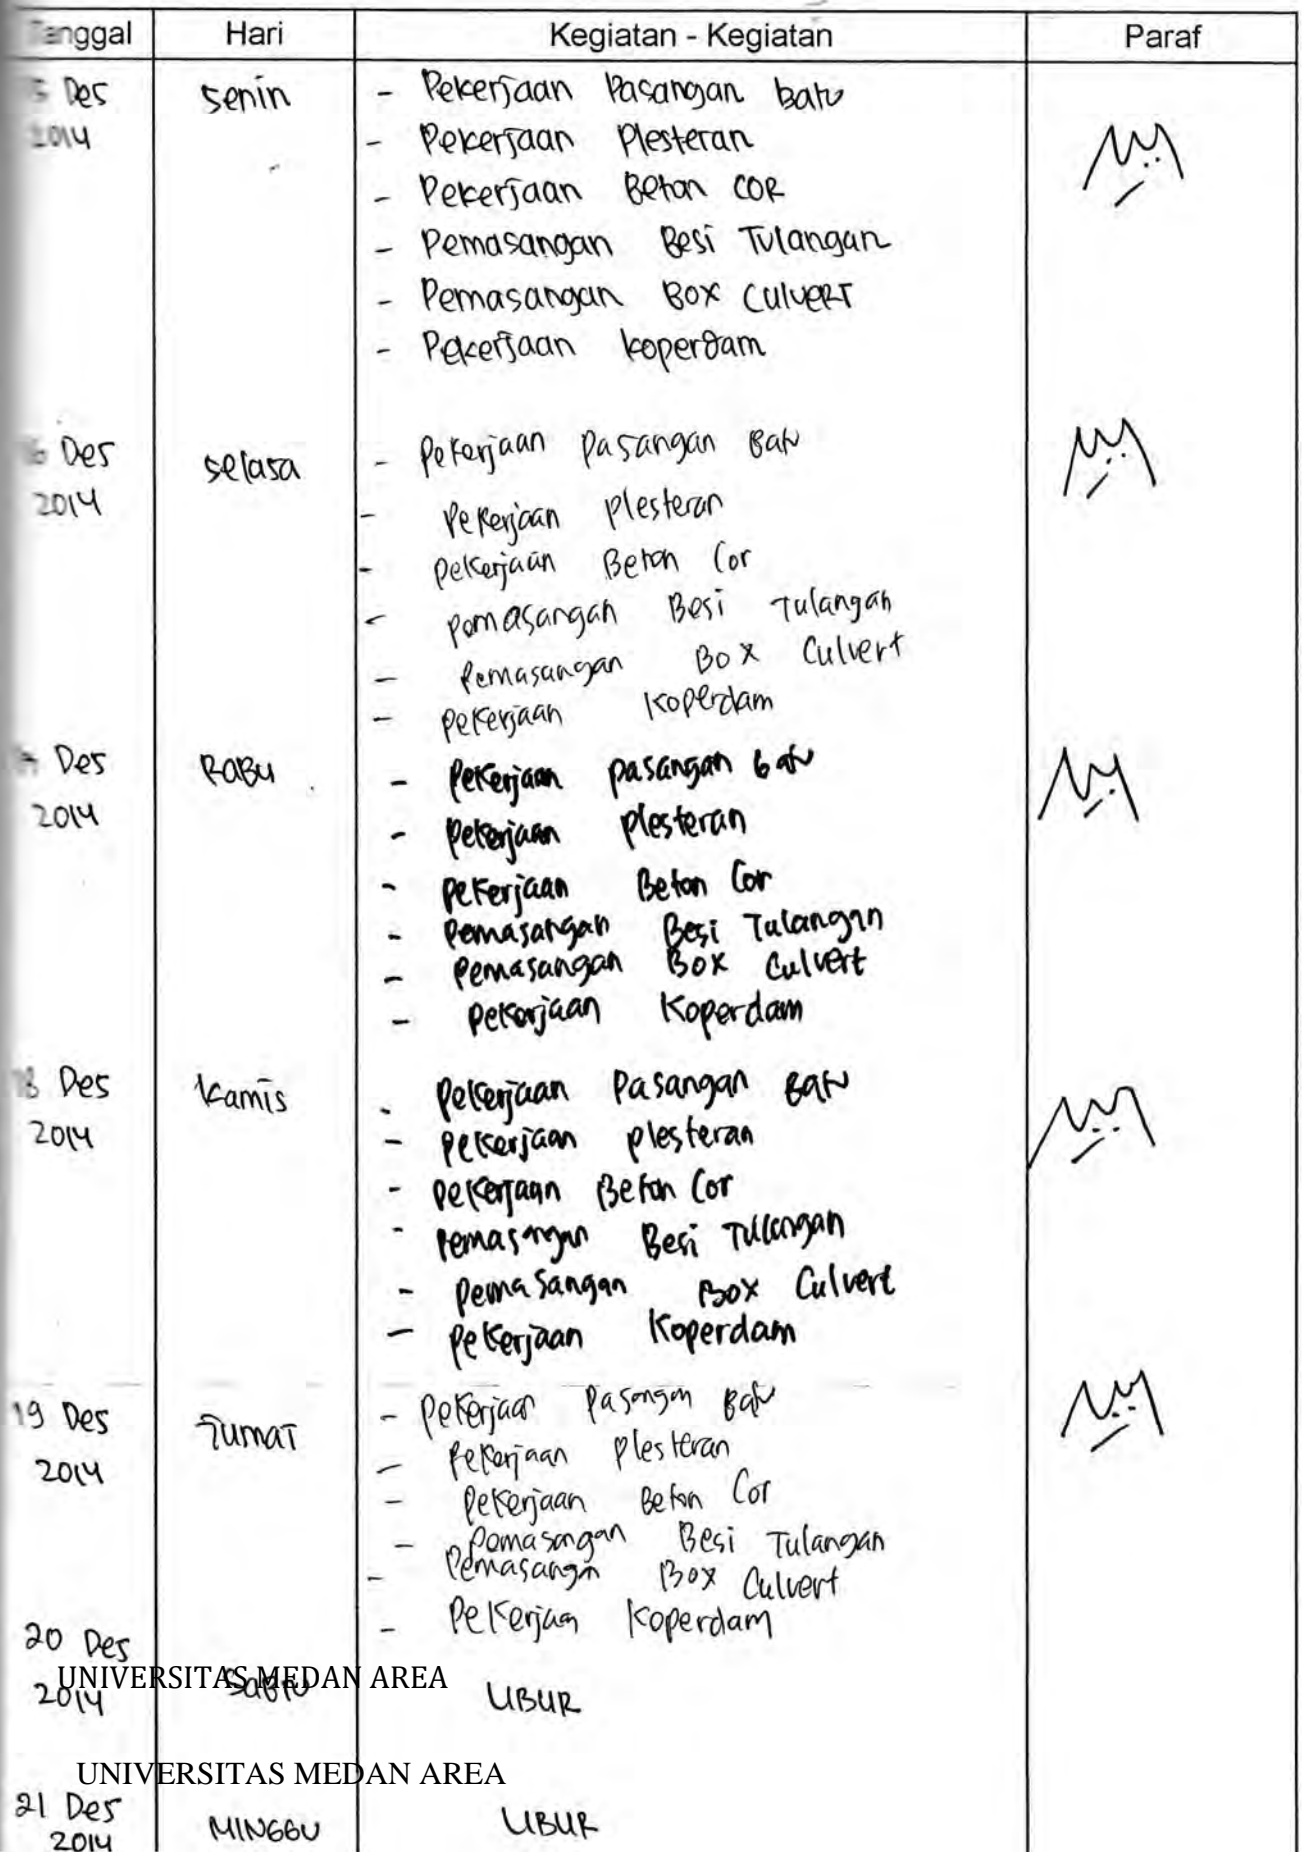 Tanggal Hari Kegiatan - Kegiatan Paraf
Des Senin - Pekerjaan Pasangan Batu
2014 - Pekerjaan Plesteran
- Pekerjaan Beton COR
- Pemasangan Besi Tulangan
- Pemasangan BOX CULVERT
- Pekerjaan koperdam
16 Des Selasa - Pekerjaan Pasangan Batu
2014 - Pekerjaan Plesteran
- Pekerjaan Beton Cor
- Pemasangan Besi Tulangan
- Pemasangan Box Culvert
- Pekerjaan Koperdam
Des RABU - Pekerjaan pasangan batu
2014 - Pekerjaan plesteran
- Pekerjaan Beton Cor
- Pemasangan Besi Tulangan
- Pemasangan Box Culvert
- Pekerjaan Koperdam
18 Des Kamis - Pekerjaan Pasangan Batu
2014 - Pekerjaan plesteran
- Pekerjaan Beton Cor
- Pemasangan Besi Tulangan
- Pemasangan Box Culvert
- Pekerjaan Koperdam
19 Des Jumat - Pekerjaan Pasangan Batu
2014 - Pekerjaan Plesteran
- Pekerjaan Beton Cor
- Pemasangan Besi Tulangan
- Pemasangan Box Culvert
- Pekerjaan Koperdam
20 Des
UNIVERSITAS MEDAN AREA
2014 Sabtu LIBUR
UNIVERSITAS MEDAN AREA
21 Des MINGGU LIBUR
2014